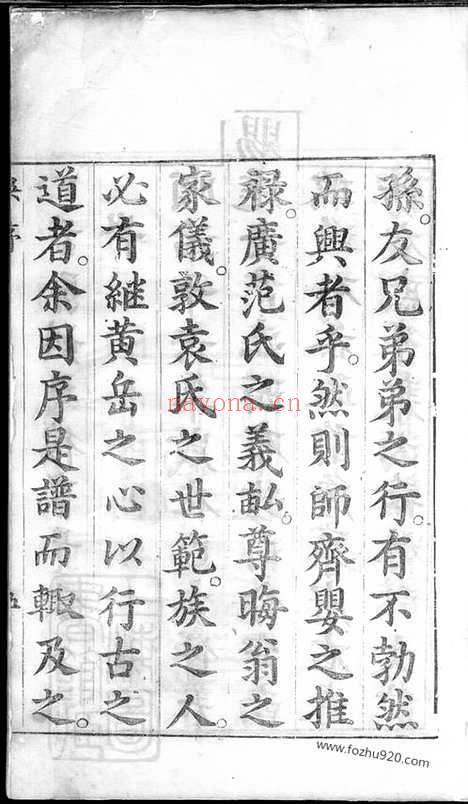 孫。友兄弟弟之行。有不勃然
而興者乎。然則師齊嬰之推
祿。廣范氏之義畝。尊晦翁之
家儀。敦袁氏之世範。族之人。
必有繼黄岳之心以行古之
道者。余因序是譜而輙及之。
五
賜
nayona.cn
www.fozhu920.com